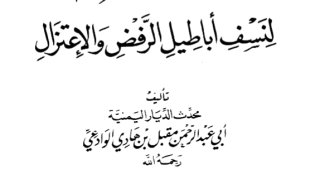 لِنَسْفِ أَبَاطِيلِ الرَّفْضِ وَالإِعْتِزَالِ
تأليف
محدث الديار اليمنية
أبي عبد الرحمن مقبل بن هادي الوادعي
رحمه الله